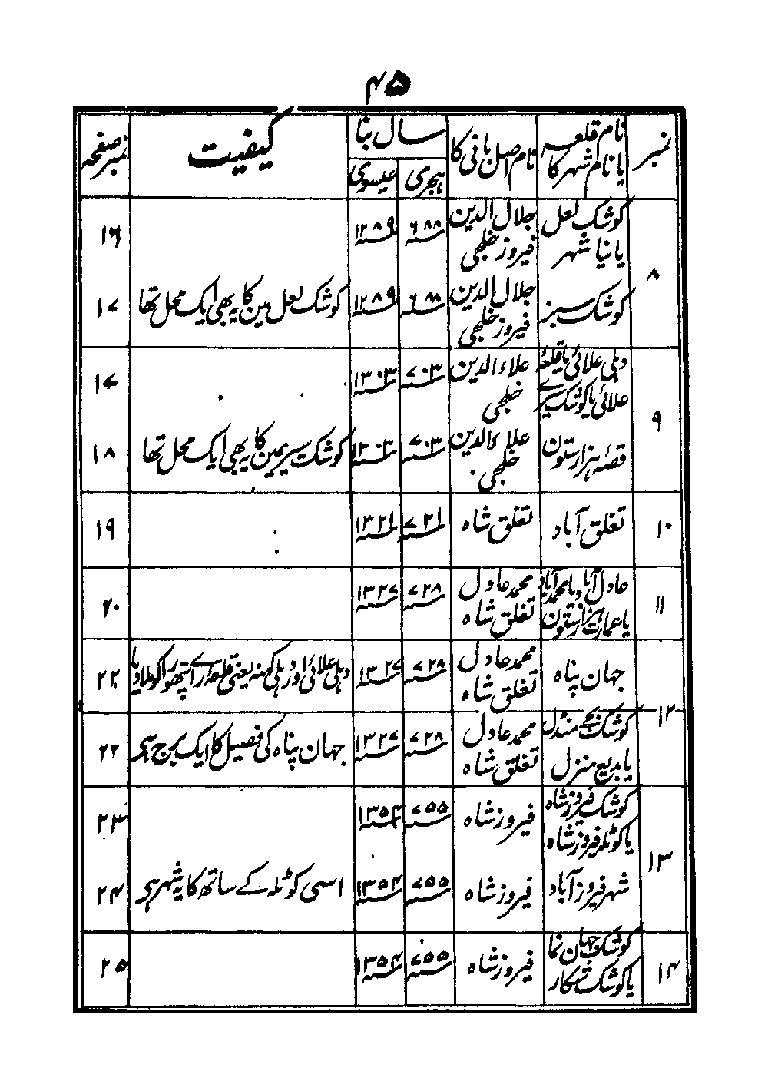 ۴۵
نمبر
نام قلعہ
یا نام شہر کا
نام اصل بانی کا
سال بنا
ہجری
عیسوی
کیفیت
نمبر صفحہ
۸
کوشک لعل
یا نیا شہر
جلال الدین
فیروز خلجی
۶۸۸
۱۲۸۹
۱۶
کوشک سبز
جلال الدین
فیروز خلجی
۶۸۸
۱۲۸۹
کوشک لعل مین کا یہ بھی ایک محل تھا
۱۷
۹
دہلی علائی یا قلعہ
علائی یا کوشک سیری
علاء الدین
خلجی
۷۰۳
۱۳۰۳
۱۷
قصر ہزار ستون
علاء الدین
خلجی
۷۰۳
۱۳۰۳
کوشک سیری مین کا یہ بھی ایک محل تھا
۱۸
۱۰
تغلق آباد
تغلق شاہ
۷۲۱
۱۳۲۱
۱۹
۱۱
عادل آباد یا محمد آباد
یا عمارت ہزار ستون
محمد عادل
تغلق شاہ
۷۲۸
۱۳۲۷
۲۰
۱۲
جہان پناہ
محمد عادل
تغلق شاہ
۷۲۸
۱۳۲۷
دہلی علائی اور دہلی کہنہ یعنی قلعہ رائے پتھورا کو ملا دیا
۲۲
کوشک بجے مندل
یا بدیع منزل
محمد عادل
تغلق شاہ
۷۲۸
۱۳۲۷
جہان پناہ کی فصیل کا ایک برج ہی
۲۲
۱۳
کوشک فیروز شاہ
یا کوٹلہ فیروز شاہ
فیروز شاہ
۷۵۵
۱۳۵۴
۲۳
شہر فیروز آباد
فیروز شاہ
۷۵۵
۱۳۵۴
اسی کوٹلہ کے ساتھ کا یہ شہر ہی
۲۴
۱۴
کوشک جہان نما
یا کوشک شکار
فیروز شاہ
۷۵۵
۱۳۵۴
۲۵